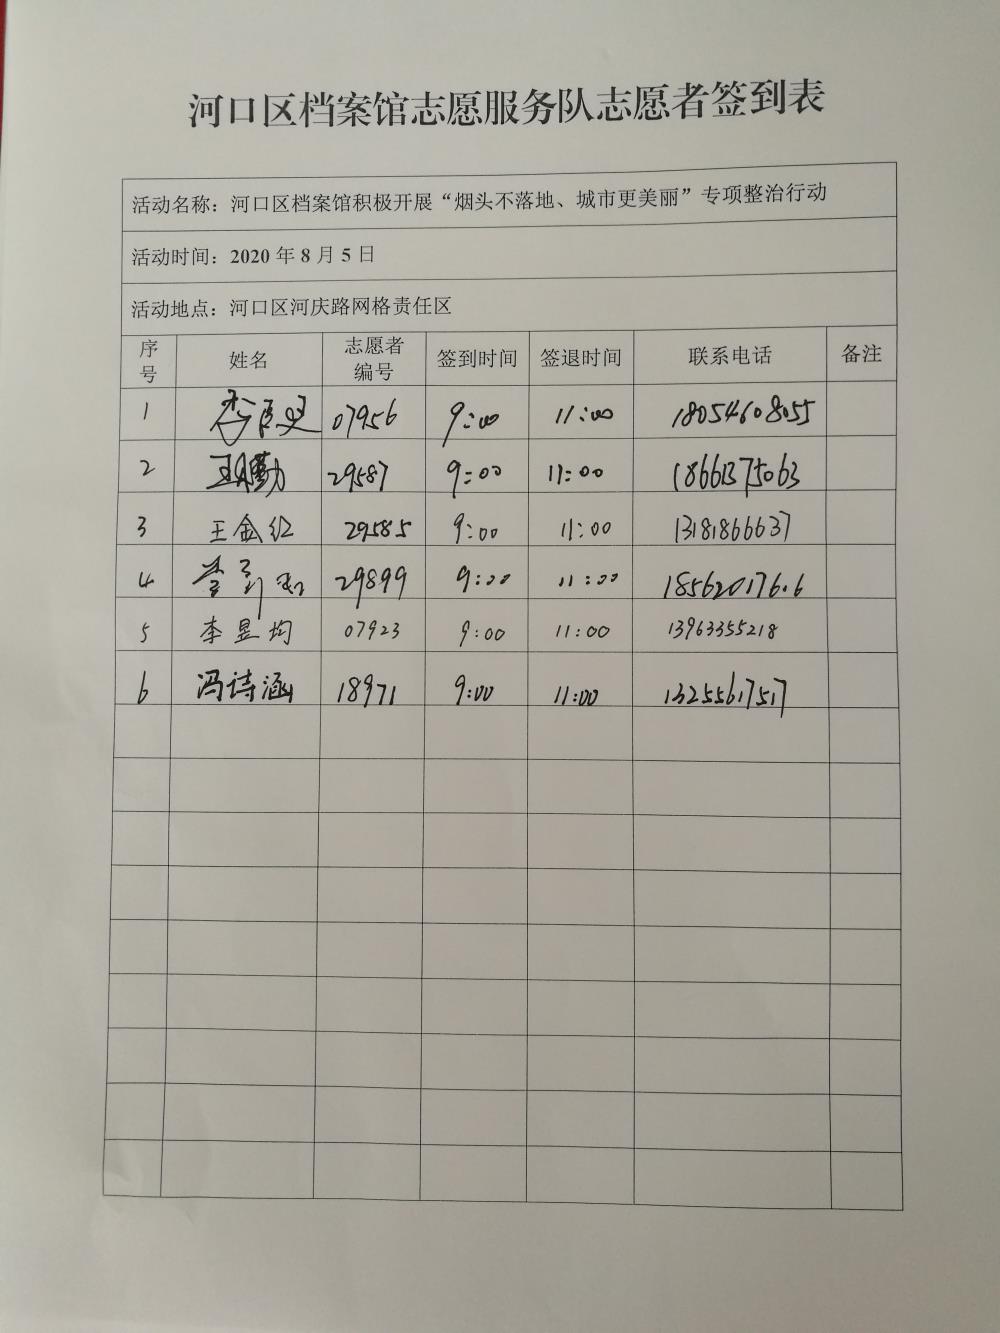 河口区档案馆志愿服务队志愿者签到表
活动名称：河口区档案馆积极开展“烟头不落地、城市更美丽”专项整治行动
活动时间：2020 年 8 月 5 日
活动地点：河口区河庆路网格责任区
序号 姓名 志愿者编号 签到时间 签退时间 联系电话 备注
1 李 07956 9:00 11:00 18054608055
2 29587 9:00 11:00 18661375063
3 王金红 29585 9:00 11:00 13181866637
4 29899 9:00 11:00 18562017616
5 李昱均 07923 9:00 11:00 13963355218
6 冯诗涵 18971 9:00 11:00 13255617517